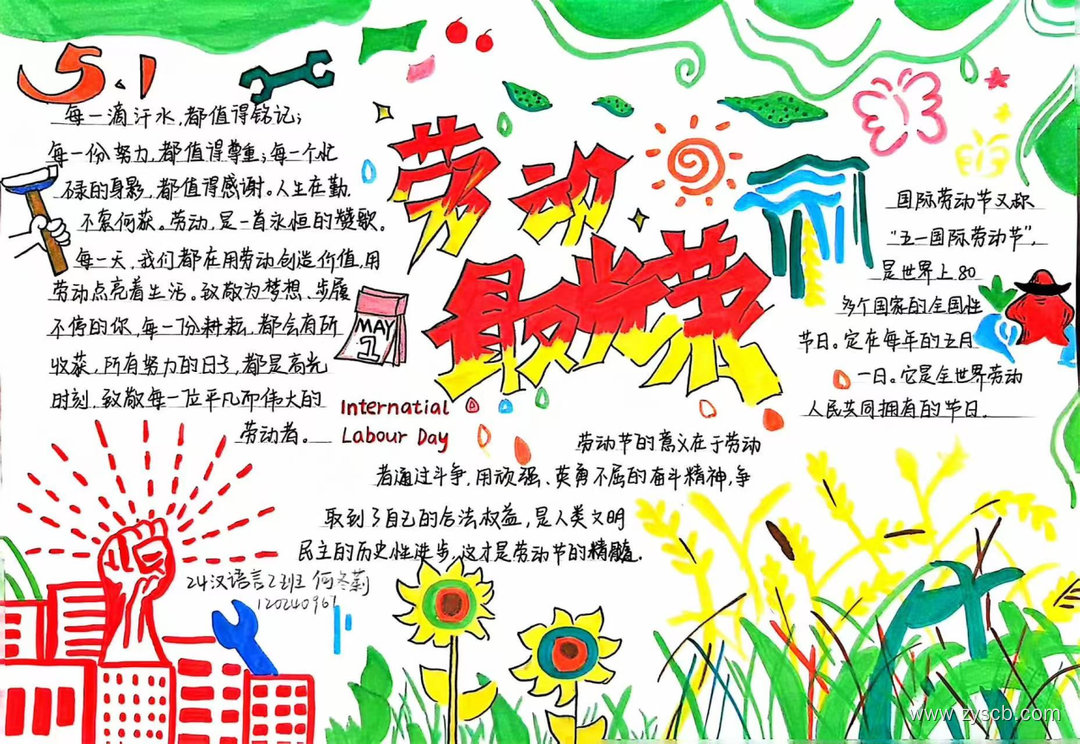 5.1
每一滴汗水,都值得铭记;
每一份努力,都值得尊重;每一个忙
碌的身影,都值得感谢。人生在勤,
不索何获。劳动,是一首永恒的赞歌。
每一天,我们都在用劳动创造价值,用
劳动点亮着生活。致敬为梦想、步履
不停的你,每一份耕耘,都会有所
收获,所有努力的日子,都是高光
时刻,致敬每一位平凡而伟大的
劳动者。
劳动
最光荣
MAY
1
Internatial
Labour Day
国际劳动节又称
“五一国际劳动节”,
是世界上80
多个国家的全国性
节日。定在每年的五月
一日。它是全世界劳动
人民共同拥有的节日.
劳动节的意义在于劳动
者通过斗争,用顽强、英勇不屈的奋斗精神,争
取到了自己的合法权益,是人类文明
民主的历史性进步,这才是劳动节的精髓.
24汉语言2班 何冬莉
120240961
www.zyscb.com